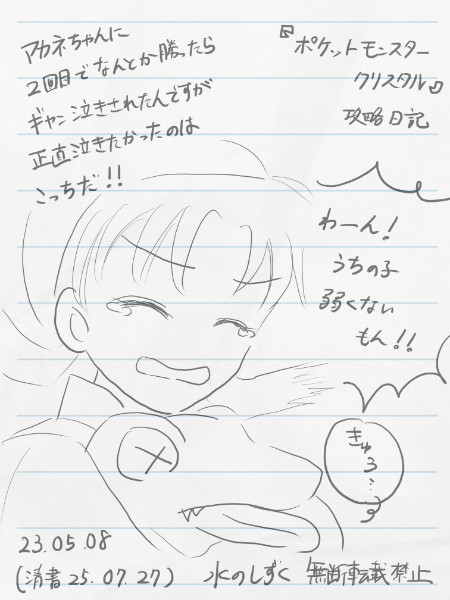 『ポケットモンスター
クリスタル』
攻略日記
アカネちゃんに
2回目でなんとか勝ったら
ギャン泣きされたんですが
正直泣きたかったのは
こっちだ!!
わーん!
うちの子
弱くない
もん!!
きゅう…
23.05.08
(清書25.07.27) 水のしずく 無断転載禁止